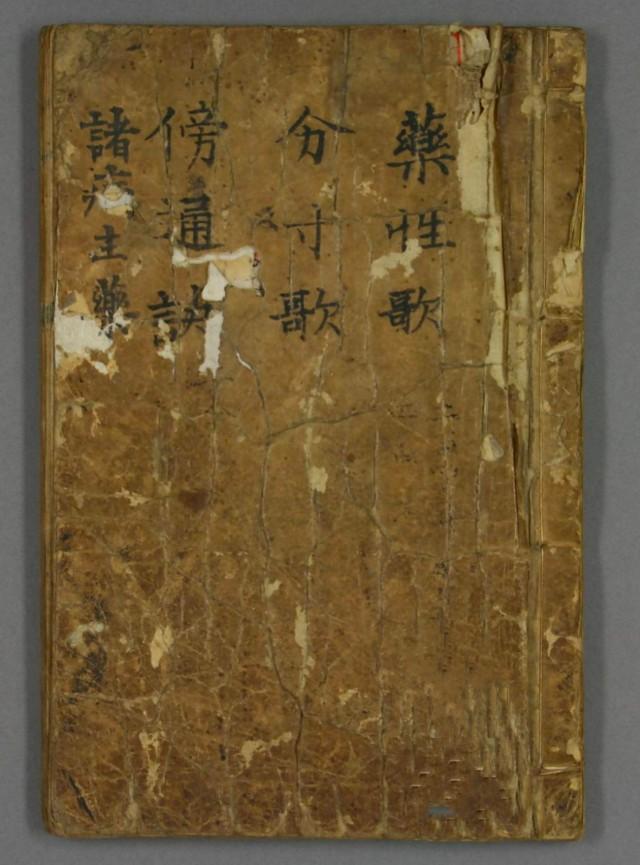 藥性歌
分寸歌
傍通訣
諸病主藥